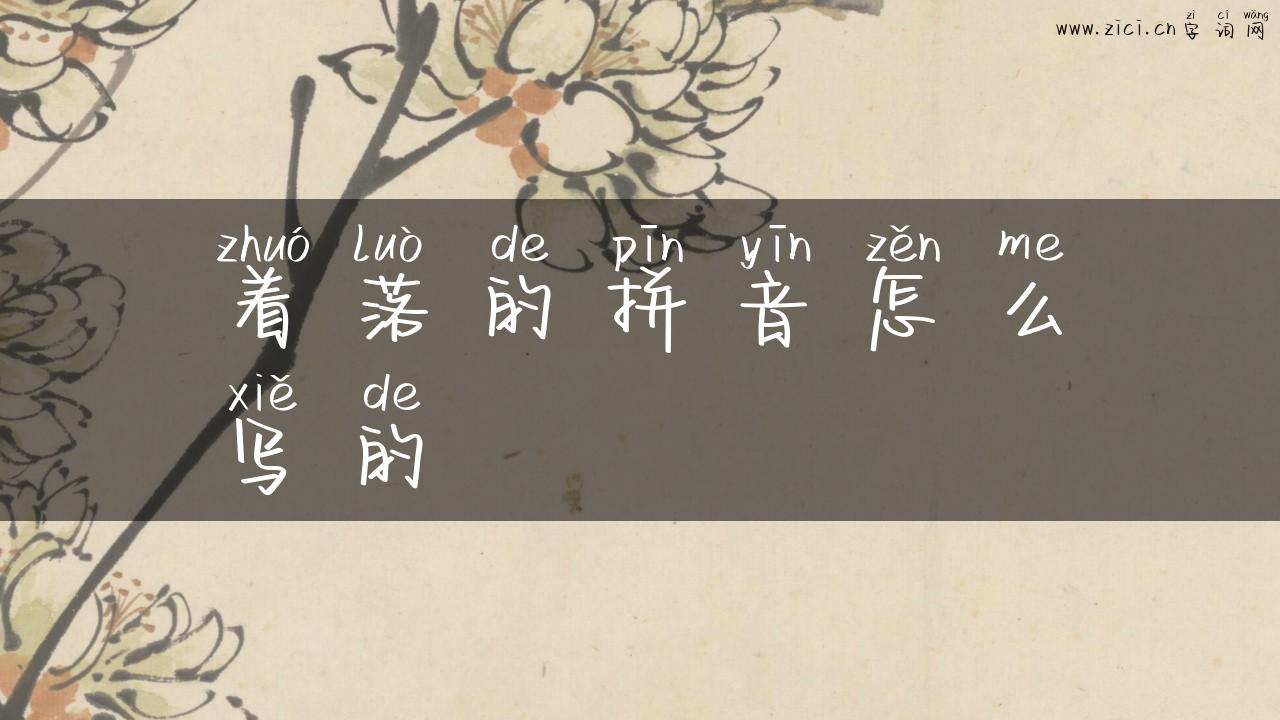 zì cí wǎng
www.zici.cn 字词网
zhuó luò de pīn yīn zěn me
着落的拼音怎么
xiě de
写的